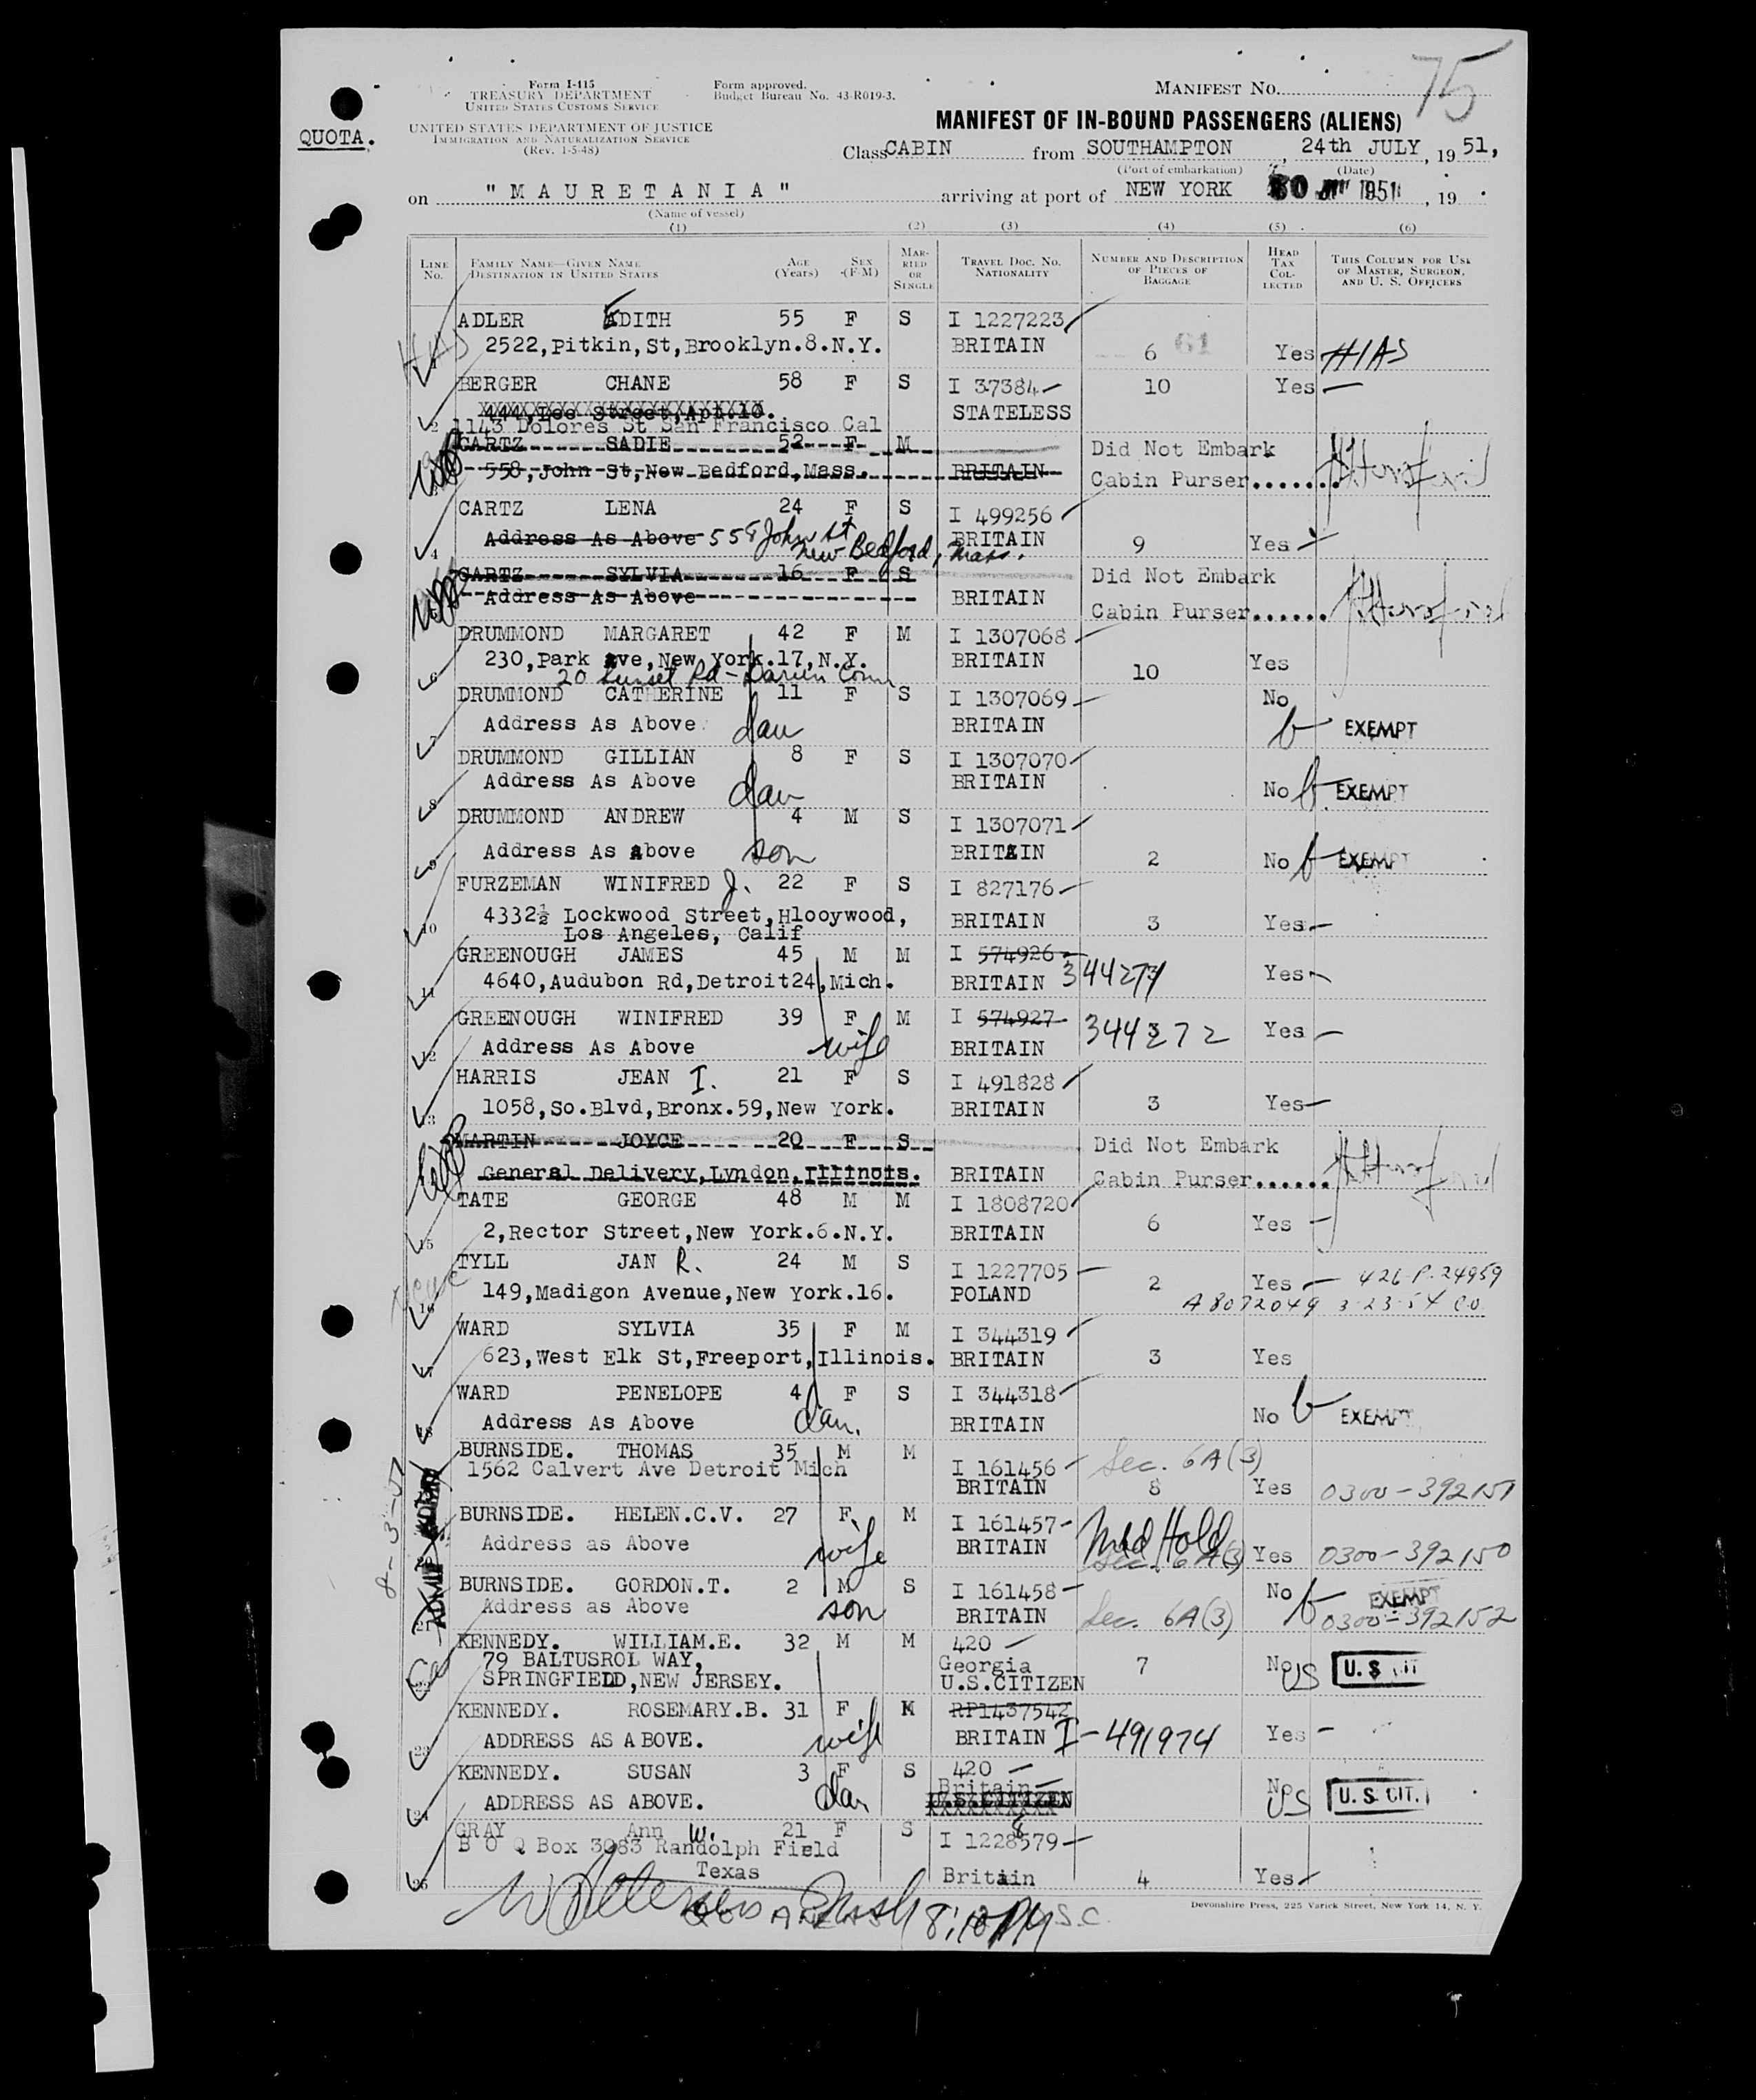 75
Form I-415
TREASURY DEPARTMENT
UNITED STATES CUSTOMS SERVICE
Form approved.
Budget Bureau No. 43-R019-3.
MANIFEST No.
QUOTA.
UNITED STATES DEPARTMENT OF JUSTICE
IMMIGRATION AND NATURALIZATION SERVICE
(Rev. 1-5-48)
MANIFEST OF IN-BOUND PASSENGERS (ALIENS)
Class CABIN from SOUTHAMPTON, 24th JULY, 1951,
(Port of embarkation) (Date)
on "MAURETANIA" arriving at port of NEW YORK 30 1951, 19
(Name of vessel)
(1) (2) (3) (4) (5) (6)
LINE No. FAMILY NAME—GIVEN NAME DESTINATION IN UNITED STATES AGE (Years) SEX (F-M) MARRIED OR SINGLE TRAVEL DOC. NO. NATIONALITY NUMBER AND DESCRIPTION OF PIECES OF BAGGAGE HEAD TAX COLLECTED THIS COLUMN FOR USE OF MASTER, SURGEON, AND U. S. OFFICERS
ADLER EDITH 55 F S I 1227223
2522,Pitkin,St,Brooklyn.8.N.Y. BRITAIN 6 61 Yes HIAS
BERGER CHANE 58 F S I 37384 10 Yes
444,Lee Street,Apt.10. STATELESS
2 1143 Dolores St San Francisco Cal
CARTZ SADIE 52 F M Did Not Embark
558,John St,New Bedford,Mass. BRITAIN Cabin Purser.......
CARTZ LENA 24 F S I 499256
4 Address As Above 558 John St New Bedford, Mass. BRITAIN 9 Yes
CARTZ SYLVIA 16 F S Did Not Embark
Address As Above BRITAIN Cabin Purser......
DRUMMOND MARGARET 42 F M I 1307068
230,Park Ave,New York.17,N.Y. BRITAIN 10 Yes
6 20 Sunset Rd - Darien Conn
DRUMMOND CATHERINE 11 F S I 1307069 No
7 Address As Above dau BRITAIN EXEMPT
DRUMMOND GILLIAN 8 F S I 1307070
8 Address As Above dau BRITAIN No EXEMPT
DRUMMOND ANDREW 4 M S I 1307071
9 Address As Above son BRITAIN 2 No EXEMPT
FURZEMAN WINIFRED J. 22 F S I 827176
10 4332½ Lockwood Street,Hlooywood, BRITAIN 3 Yes
Los Angeles, Calif
GREENOUGH JAMES 45 M M I 574926
11 4640,Audubon Rd,Detroit24,Mich. BRITAIN 344271 Yes
GREENOUGH WINIFRED 39 F M I 574927 344272 Yes
12 Address As Above wife BRITAIN
HARRIS JEAN I. 21 F S I 491828
13 1058,So.Blvd,Bronx.59,New York. BRITAIN 3 Yes
MARTIN JOYCE 20 F S Did Not Embark
General Delivery,Lyndon,Illinois. BRITAIN Cabin Purser......
TATE GEORGE 48 M M I 1808720
15 2,Rector Street,New York.6.N.Y. BRITAIN 6 Yes
TYLL JAN R. 24 M S I 1227705
16 149,Madigon Avenue,New York.16. POLAND 2 Yes 426-P.24959
A8072049 3-23-54 C.O.
WARD SYLVIA 35 F M I 344319
17 623,West Elk St,Freeport,Illinois. BRITAIN 3 Yes
WARD PENELOPE 4 F S I 344318
18 Address As Above dau. BRITAIN No EXEMPT
BURNSIDE. THOMAS 35 M M I 161456 Sec. 6A(3)
1562 Calvert Ave Detroit Mich BRITAIN 8 Yes 0300-392151
BURNSIDE. HELEN.C.V. 27 F. M I 161457 Med Hold
Address as Above wife BRITAIN Sec. 6A(3) Yes 0300-392150
BURNSIDE. GORDON.T. 2 M S I 161458 No EXEMPT
Address as Above son BRITAIN Sec. 6A(3) 0300-392152
KENNEDY. WILLIAM.E. 32 M M 420
79 BALTUSROL WAY, Georgia 7 No US U.S CIT
SPRINGFIELD,NEW JERSEY. U.S.CITIZEN
KENNEDY. ROSEMARY.B. 31 F M RP1437542
23 ADDRESS AS ABOVE. wife BRITAIN I-491974 Yes
KENNEDY. SUSAN 3 F S 420
Britain
24 ADDRESS AS ABOVE. dau U.S.CITIZEN No US U.S. CIT.
GRAY Ann W. 21 F S I 1228579 8
B O Q Box 3083 Randolph Field
25 Texas Britain 4 Yes
8:10 PM S.C.
Devonshire Press, 225 Varick Street, New York 14, N. Y.